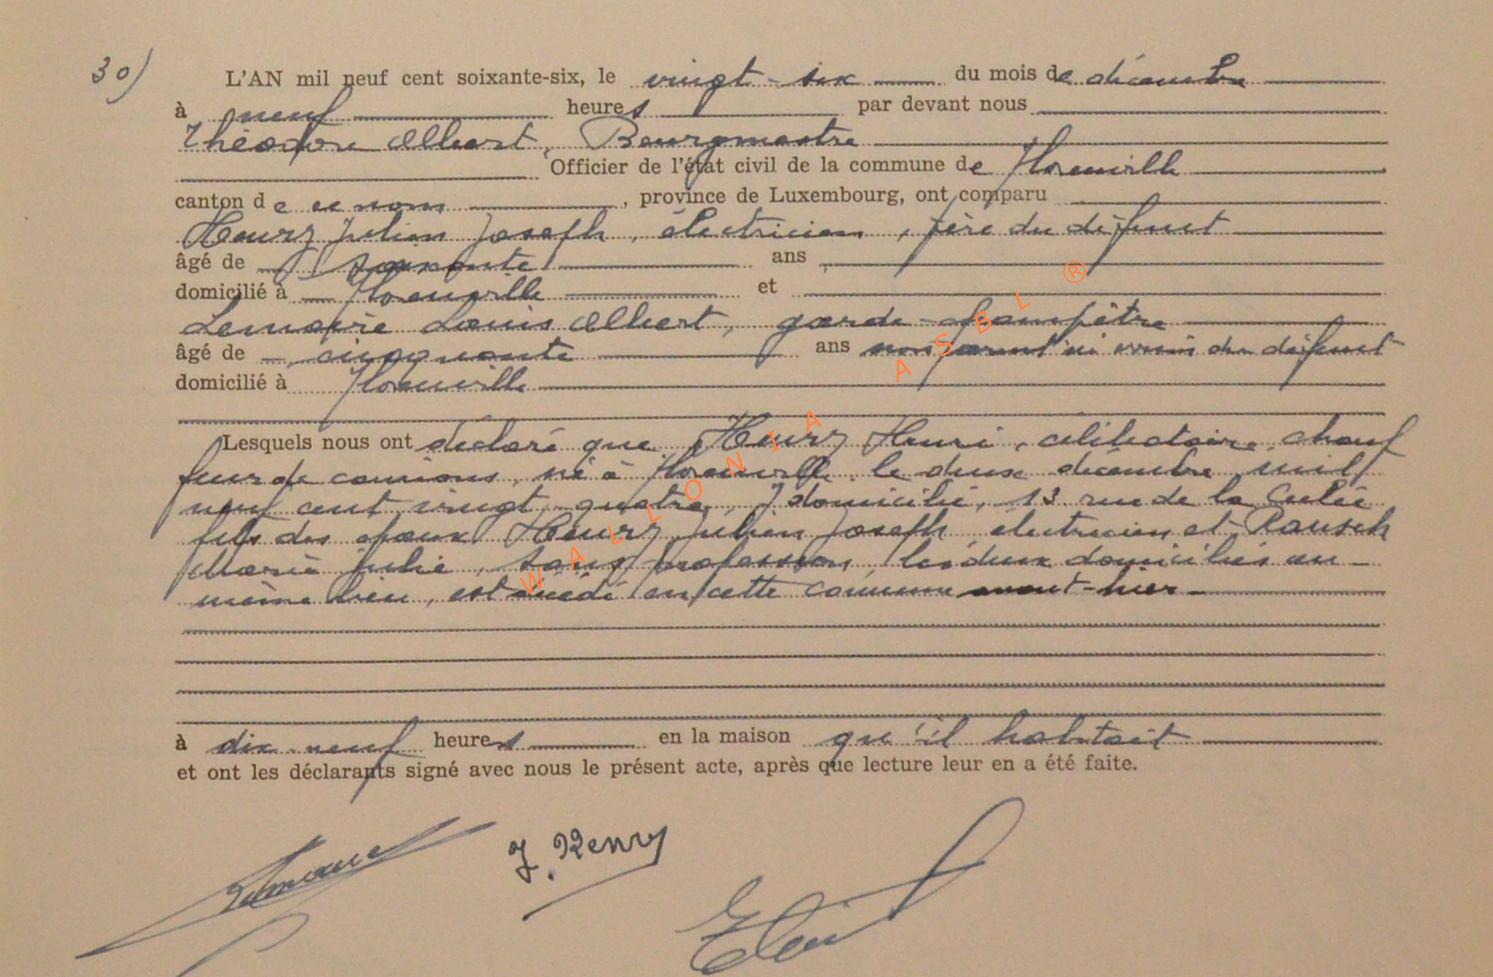 30)
L'AN mil neuf cent soixante-six, le vingt-six du mois de décembre
à neuf heures par devant nous
Théodore Albert, Bourgmestre
Officier de l'état civil de la commune de Florenville
canton de ce nom, province de Luxembourg, ont comparu
Henry Julien Joseph, électricien, père du défunt
âgé de soixante ans
domicilié à Florenville et
Lemaire Louis Albert, garde-champêtre
âgé de cinquante ans non parent ni voisin du défunt
domicilié à Florenville
Lesquels nous ont déclaré que Henry Henri, célibataire, chauf
feur de camions, né à Florenville le deux décembre mil
neuf cent vingt quatre, y domicilié, 13 rue de la Culée
fils des époux Henry Julien Joseph électricien et Rausch
Marie Julie, sans profession, les deux domiciliés au
même lieu, est décédé en cette commune avant-hier
à dix-neuf heures en la maison qu'il habitait
et ont les déclarants signé avec nous le présent acte, après que lecture leur en a été faite.
J. Henry
WALLONIA ASBL ®